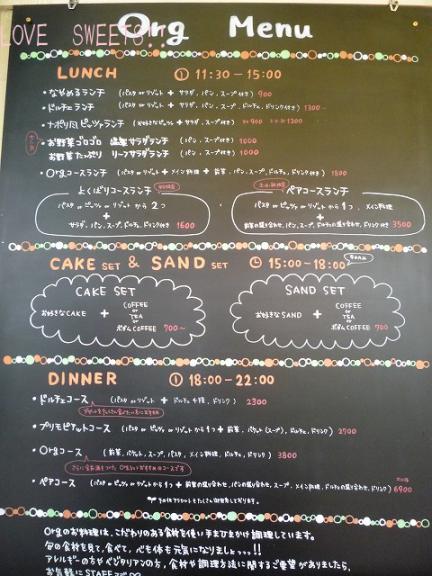 LOVE SWEETS!!
Org Menu
LUNCH 11:30-15:00
・なやめるランチ (パスタ or リゾット + サラダ、パン、スープ付き) 900
・ドルチェランチ (パスタ or リゾット + サラダ、パン、スープ、ドルチェ、ドリンク付き) 1300-
・ナポリ風ピッツァランチ
・お野菜ゴロゴロ 温菜サラダランチ (パン、スープ付き) 1000
お野菜たっぷり リーフサラダランチ (パン、スープ付き) 1000
・Orgコースランチ (パスタ or リゾット + メイン料理 + 前菜、パン、スープ、ドリンク付き) 1800
よくばりコースランチ
パスタ or ピッツァ or リゾット から 2つ
+
サラダ、パン、スープ、ドルチェ、ドリンク付き 1600
ペアコースランチ
パスタ or ピッツァ or リゾット から 1つ、メイン料理
+
前菜の盛り合わせ、パン、スープ、ドルチェの盛り合わせ、ドリンク付き 3500
CAKE SET & SAND SET 15:00-18:00
CAKE SET
お好きなCAKE + COFFEE or TEA or ボダムCOFFEE 700~
SAND SET
お好きなSAND + COFFEE or TEA or ボダムCOFFEE 700
DINNER 18:00-22:00
・ドルチェコース (パスタ or リゾット + ドルチェ、ドリンク) 2300
・プリモピアットコース (パスタ or ピッツァ or リゾットから1つ + 前菜、バケット、スープ、ドルチェ、ドリンク) 2700
・Orgコース (前菜、バケット、スープ、パスタ、メイン料理、ドルチェ、ドリンク) 3800
・ペアコース (パスタ or ピッツァ or リゾットから1つ + 前菜の盛り合わせ、パン、スープ、メイン料理、ドルチェの盛り合わせ、ドリンク) 6900
Orgのお料理は、こだわりのある食材を使い手まひまかけ調理しています。
旬の食材を見て、食べて、心も体も元気になりましょ...!!
アレルギーの方やベジタリアンの方、食材や調理方法に関するご要望がありましたら、
お気軽にSTAFF